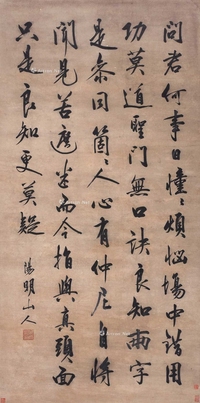 問君何事日憧〻煩惱塲中錯用
功莫道聖門無口訣良知兩字
是參同箇〻人心有仲尼自將
聞見苦遮迷而今指與真頭面
只是良知更莫疑
陽明山人